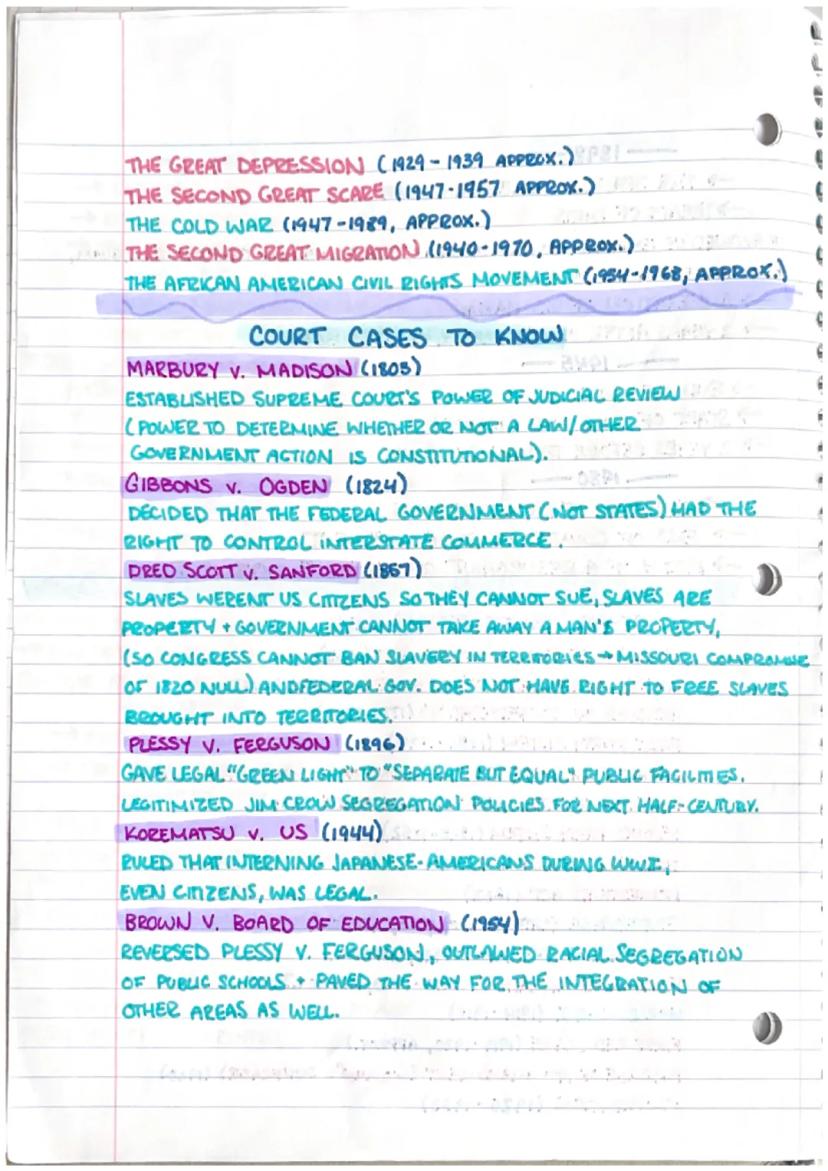 THE GREAT DEPRESSION (1929-1939 APPROX.)
THE SECOND GREAT SCARE (1947-1957 APPROX.)
THE COLD WAR (1947-1989, APPROX.)
THE SECOND GREAT MIGRATION (1940-1970, APPROX.)
THE AFRICAN AMERICAN CIVIL RIGHTS MOVEMENT (1954-1968, APPROX.)
COURT CASES TO KNOW
MARBURY V. MADISON (1803)
ESTABLISHED SUPREME COURT'S POWER OF JUDICIAL REVIEW
(POWER TO DETERMINE WHETHER OR NOT A LAW/OTHER
GOVERNMENT ACTION IS CONSTITUTIONAL).
GIBBONS V. OGDEN (1824)
DECIDED THAT THE FEDERAL GOVERNMENT (NOT STATES) HAD THE
RIGHT TO CONTROL INTERSTATE COMMERCE.
DRED SCOTT V. SANFORD (1857)
SLAVES WERENT US CITIZENS SO THEY CANNOT SUE, SLAVES ARE
PROPERTY + GOVERNMENT CANNOT TAKE AWAY A MAN'S PROPERTY,
(SO CONGRESS CANNOT BAN SLAVERY IN TERRITORIES → MISSOURI COMPROMISE
OF 1820 NULL) AND FEDERAL GOV. DOES NOT HAVE RIGHT TO FREE SLAVES
BROUGHT INTO TERRITORIES.
PLESSY V. FERGUSON (1896)
GAVE LEGAL "GREEN LIGHT" TO "SEPARATE BUT EQUAL" PUBLIC FACILITIES.
LEGITIMIZED JIM CROW SEGREGATION POLICIES FOR NEXT HALF-CENTURY.
KOREMATSU V. US (1944)
RULED THAT INTERNING JAPANESE-AMERICANS DURING WWI,
EVEN CITIZENS, WAS LEGAL.
BROWN V. BOARD OF EDUCATION (1954)
REVERSED PLESSY V. FERGUSON, OUTLAWED RACIAL SEGREGATION
OF PUBLIC SCHOOLS + PAVED THE WAY FOR THE INTEGRATION OF
OTHER AREAS AS WELL.